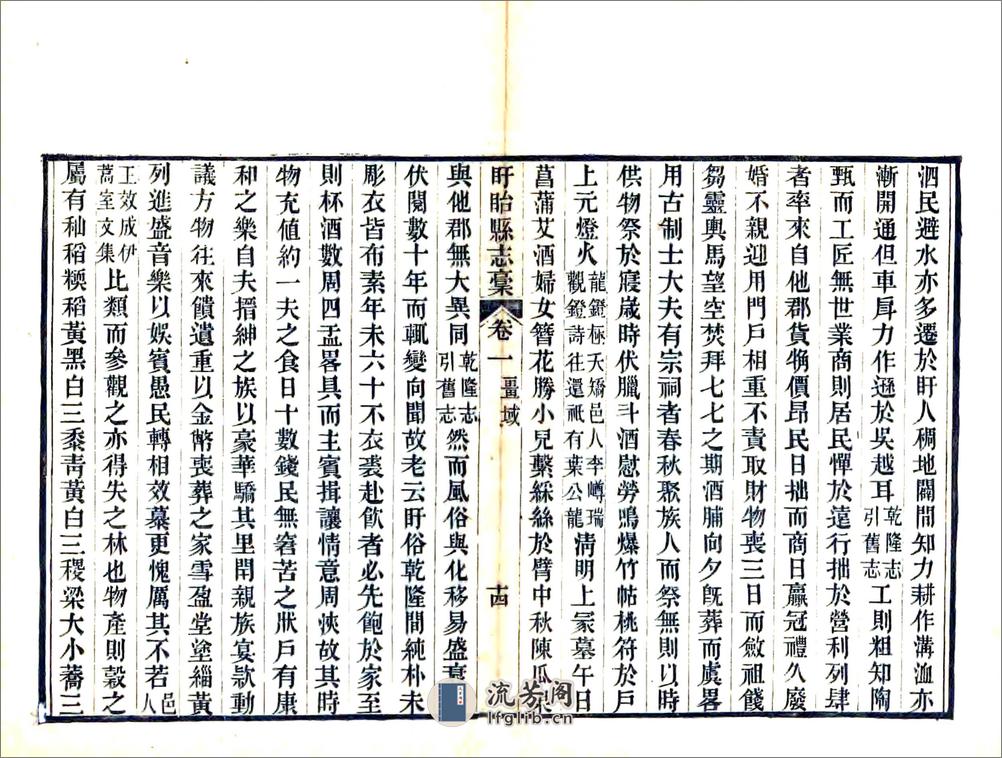 泗民避水亦多遷於盱人稠地闢閒知力耕作溝洫亦
漸開通但車戽力作遜於吳越耳乾隆志引舊志工則粗知陶
甄而工匠無世業商則居民憚於遠行拙於營利列肆
者率來自他郡貨犄價昂民日拙而商日贏冠禮久廢
婚不親迎用門戶相重不責取財物喪三日而斂祖餞
芻靈輿馬望空焚拜七七之期酒脯向夕旣葬而虞畧
用古制士大夫有宗祠者春秋聚族人而祭無則以時
供物祭於寢歲時伏臘斗酒慰勞鳴爆竹帖桃符於戶
上元燈火龍鐙極夭矯邑人李嶟瑞觀鐙詩往還祇有葉公龍淸明上冢墓午日
菖蒲艾酒婦女簪花勝小兒繫綵絲於臂中秋陳瓜果
盱眙縣志稾
卷一
畺域
十四
與他郡無大異同乾隆志引舊志然而風俗與化移易盛衰
伏閱數十年而輒變向聞故老云盱俗乾隆間純朴未
彫衣皆布素年未六十不衣裘赴飲者必先飽於家至
則杯酒數周四盂畧具而主賓揖讓情意周浹故其時
物充値約一夫之食日十數錢民無窘苦之狀戶有康
和之樂自夫搢紳之族以豪華驕其里閈親族宴欵動
議方物往來饋遺重以金幣喪葬之家雪盈堂塗緇黃
列進盛音樂以娛賓愚民轉相效慕更愧厲其不若邑人
王效成伊蒿室文集比類而參觀之亦得失之林也物產則穀之
屬有秈稻稉稻黃黑白三黍靑黃白三稷粱大小蕎三
流芳阁
lfglib.cn